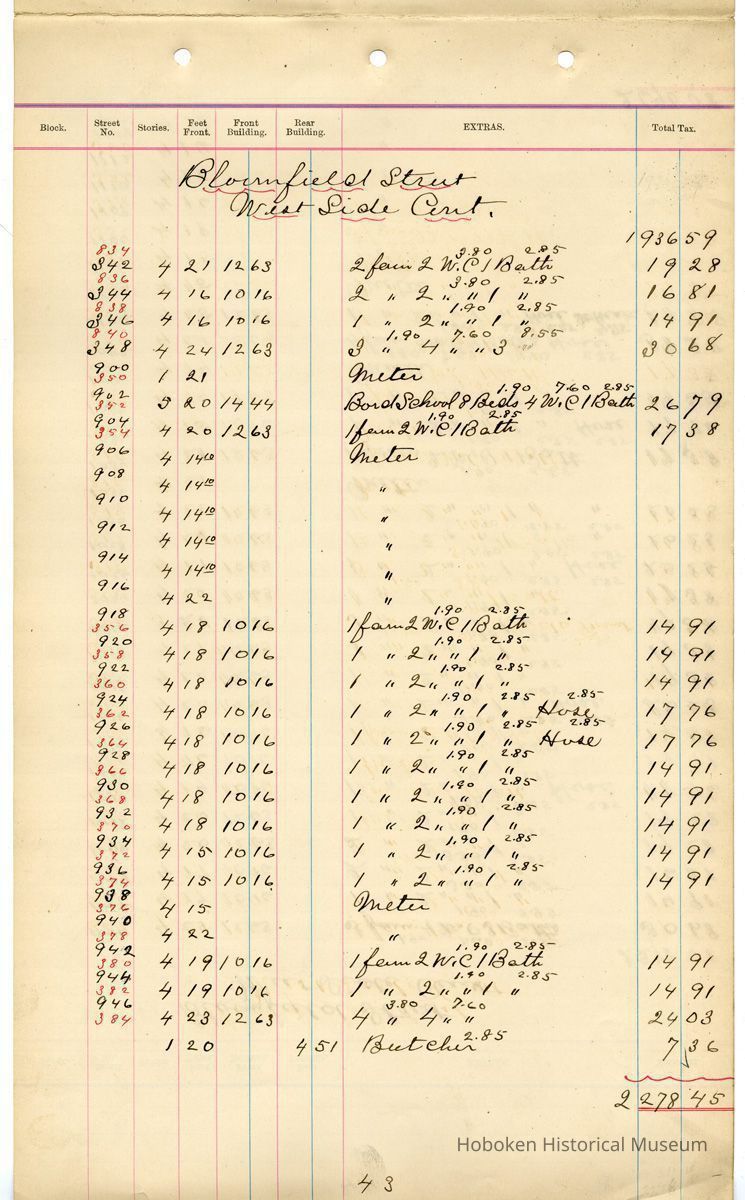 Block. Street No. Stories. Feet Front. Front Building. Rear Building. EXTRAS. Total Tax.
Bloomfield Street
West Side Cont.
1936 59
834 3.80 2.85
342 4 21 12 63 2 fam 2 W.C 1 Bath 19 28
836 3.80 2.85
344 4 16 10 16 2 " 2 " " 1 " 16 81
838 1.90 2.85
346 4 16 10 16 1 " 2 " " 1 " 14 91
840 1.90 7.60 8.55
348 4 24 12 63 3 " 4 " " 3 " 30 68
900
350 1 21 Meter
902 1.90 7.60 2.85
352 5 20 14 44 Bord School 8 Beds 4 W.C 1 Bath 26 79
904 1.90 2.85
354 4 20 12 63 1 fam 2 W.C 1 Bath 17 38
906 4 14 10 Meter
908 4 14 10 "
910 4 14 10 "
912 4 14 10 "
914 4 14 10 "
916 4 22 "
918 1.90 2.85
356 4 18 10 16 1 fam 2 W.C 1 Bath 14 91
920 1.90 2.85
358 4 18 10 16 1 " 2 " " 1 " 14 91
922 1.90 2.85
360 4 18 10 16 1 " 2 " " 1 " 14 91
924 1.90 2.85 2.85
362 4 18 10 16 1 " 2 " " 1 " Hose 17 76
926 1.90 2.85 2.85
364 4 18 10 16 1 " 2 " " 1 " Hose 17 76
928 1.90 2.85
366 4 18 10 16 1 " 2 " " 1 " 14 91
930 1.90 2.85
368 4 18 10 16 1 " 2 " " 1 " 14 91
932 1.90 2.85
370 4 18 10 16 1 " 2 " " 1 " 14 91
934 1.90 2.85
372 4 15 10 16 1 " 2 " " 1 " 14 91
936 1.90 2.85
374 4 15 10 16 1 " 2 " " 1 " 14 91
938
376 4 15 Meter
940
378 4 22 "
942 1.90 2.85
380 4 19 10 16 1 fam 2 W.C 1 Bath 14 91
944 1.90 2.85
382 4 19 10 16 1 " 2 " " 1 " 14 91
946 3.80 7.60
384 4 23 12 63 4 " 4 " " 24 03
1 20 4 51 Butcher 2.85 7 36
2 278 45
Hoboken Historical Museum
43